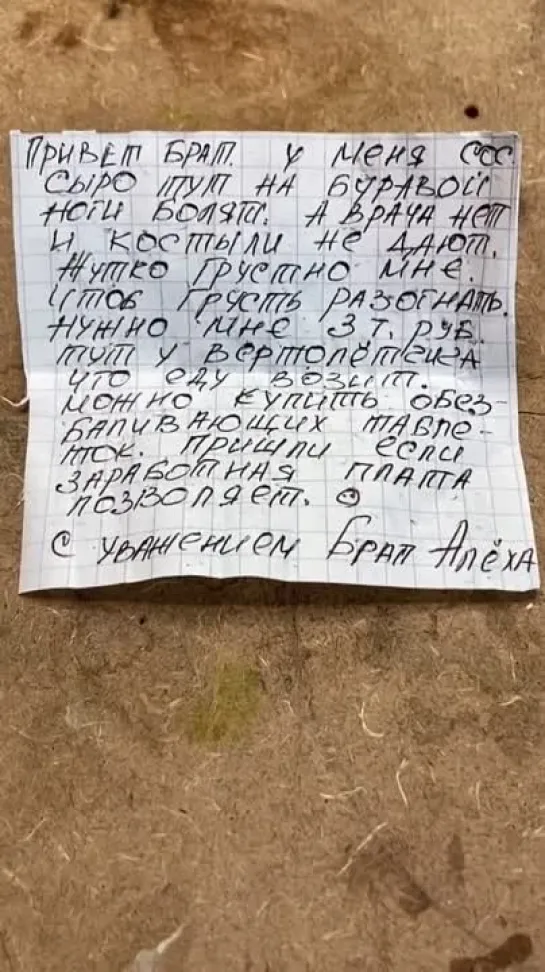 ПРИВЕТ БРАТ. У МЕНЯ СОС
СЫРО ТУТ НА БУРАВОЙ
НОГИ БОЛЯТ. А ВРАЧА НЕТ
И КОСТЫЛИ НЕ ДАЮТ.
ЖУТКО ГРУСТНО МНЕ.
ШТОБ ГРУСТЬ РАЗОГНАТЬ.
НУЖНО МНЕ 3 Т. РУБ.
ТУТ У ВЕРТОЛЁТЧИКА
ЧТО ЕДУ ВОЗИТ.
МОЖНО КУПИТЬ ОБЕЗ-
БАЛИВАЮЩИХ ТАБЛЕ-
ТОК. ПРИШЛИ ЕСЛИ
ЗАРАБОТНАЯ ПЛАТА
ПОЗВОЛЯЕТ.
С УВАЖЕНИЕМ БРАТ АЛЁХА